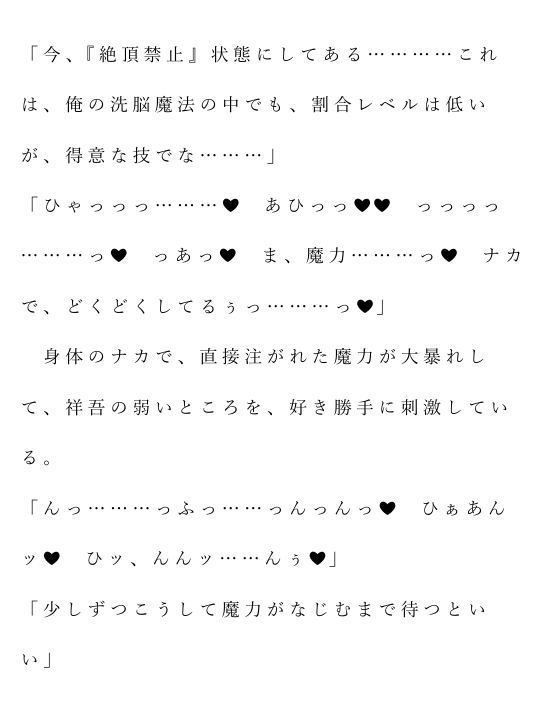 「今、『絶頂禁止』状態にしてある…………これ
は、俺の洗脳魔法の中でも、割合レベルは低い
が、得意な技でな………」
「ひゃっっっ………♥　あひっっ♥♥　っっっっ
………っ♥　っあっ♥　ま、魔力………っ♥　ナカ
で、どくどくしてるぅっ………っ♥」
　身体のナカで、直接注がれた魔力が大暴れし
て、祥吾の弱いところを、好き勝手に刺激してい
る。
「んっ………っふっ……っんっんっ♥　ひぁあん
ッ♥　ひッ、んんッ……んぅ♥」
「少しずつこうして魔力がなじむまで待つとい
い」